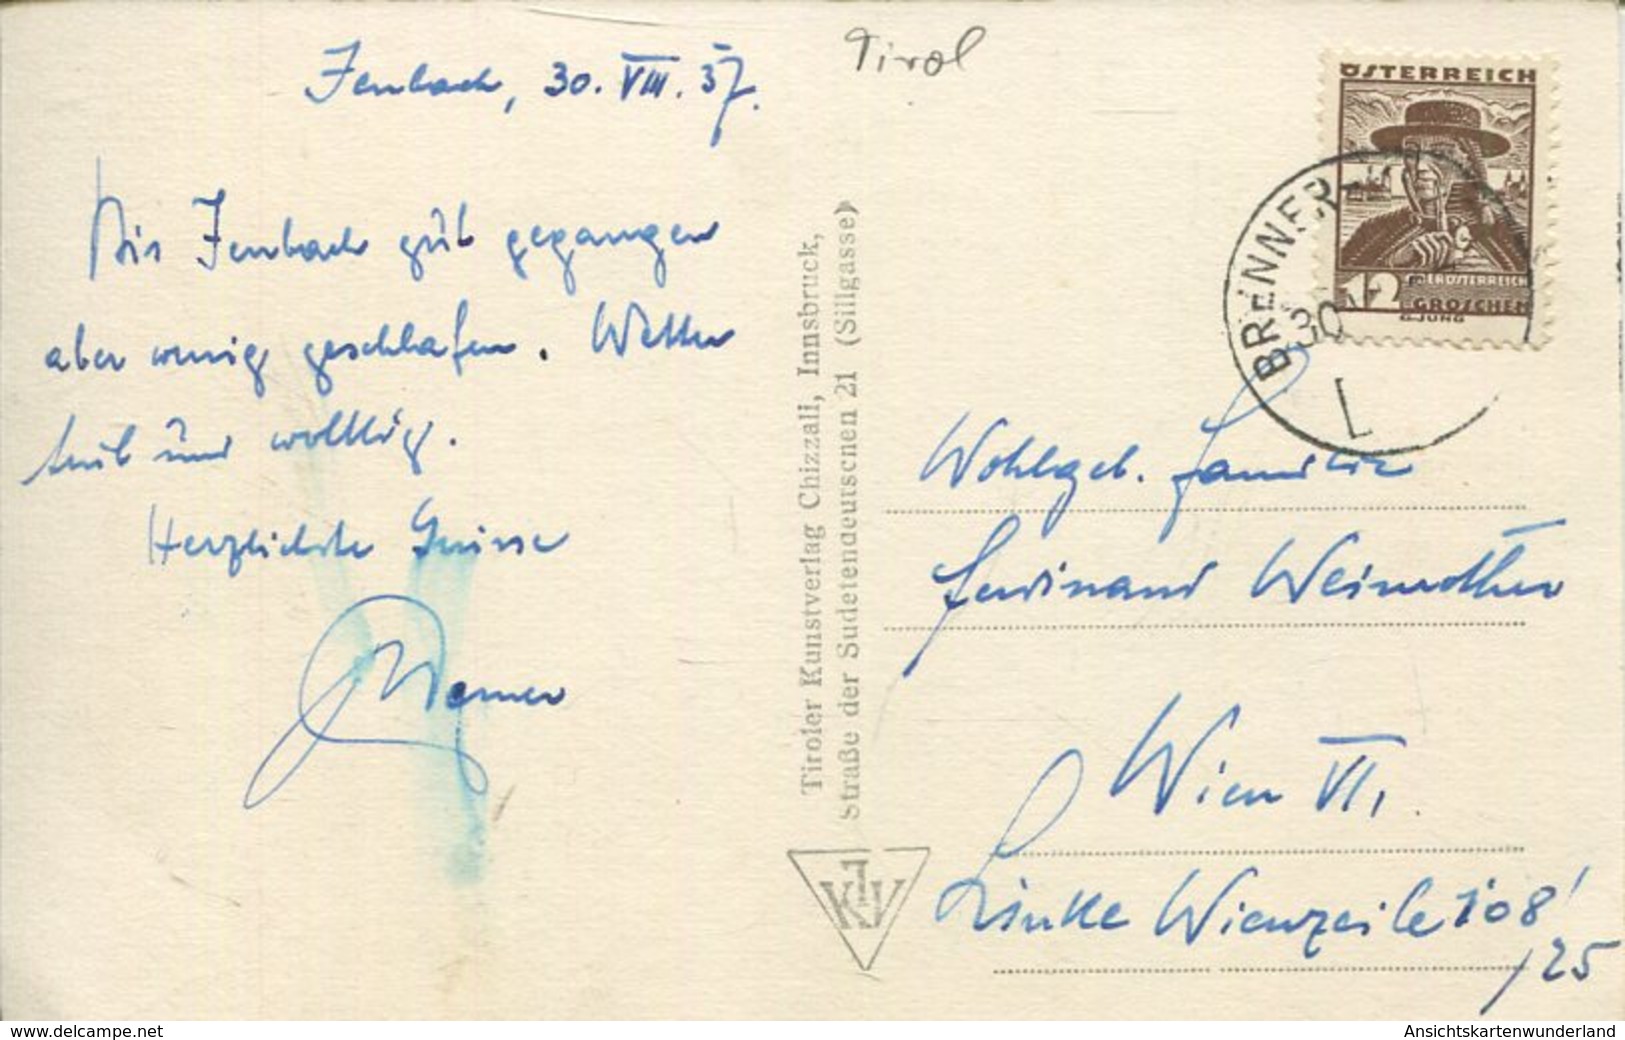 Jenbach, 30. VIII. 37.
Bis Jenbach gut gegangen
aber wenig geschlafen. Wetter
trüb und wolkig.
Herzlichste Grüsse
Werner
Tirol
Tiroler Kunstverlag Chizzali, Innsbruck,
Straße der Sudetendeutschen 21 (Sillgasse)
ÖSTERREICH
12 GROSCHEN
OBERÖSTERREICH
G.JUNG
BRENNER
30
Wohlgeb. Familie
Ferdinand Weinrother
Wien VI,
Linke Wienzeile 108
/25
www.delcampe.net
Ansichtskartenwunderland